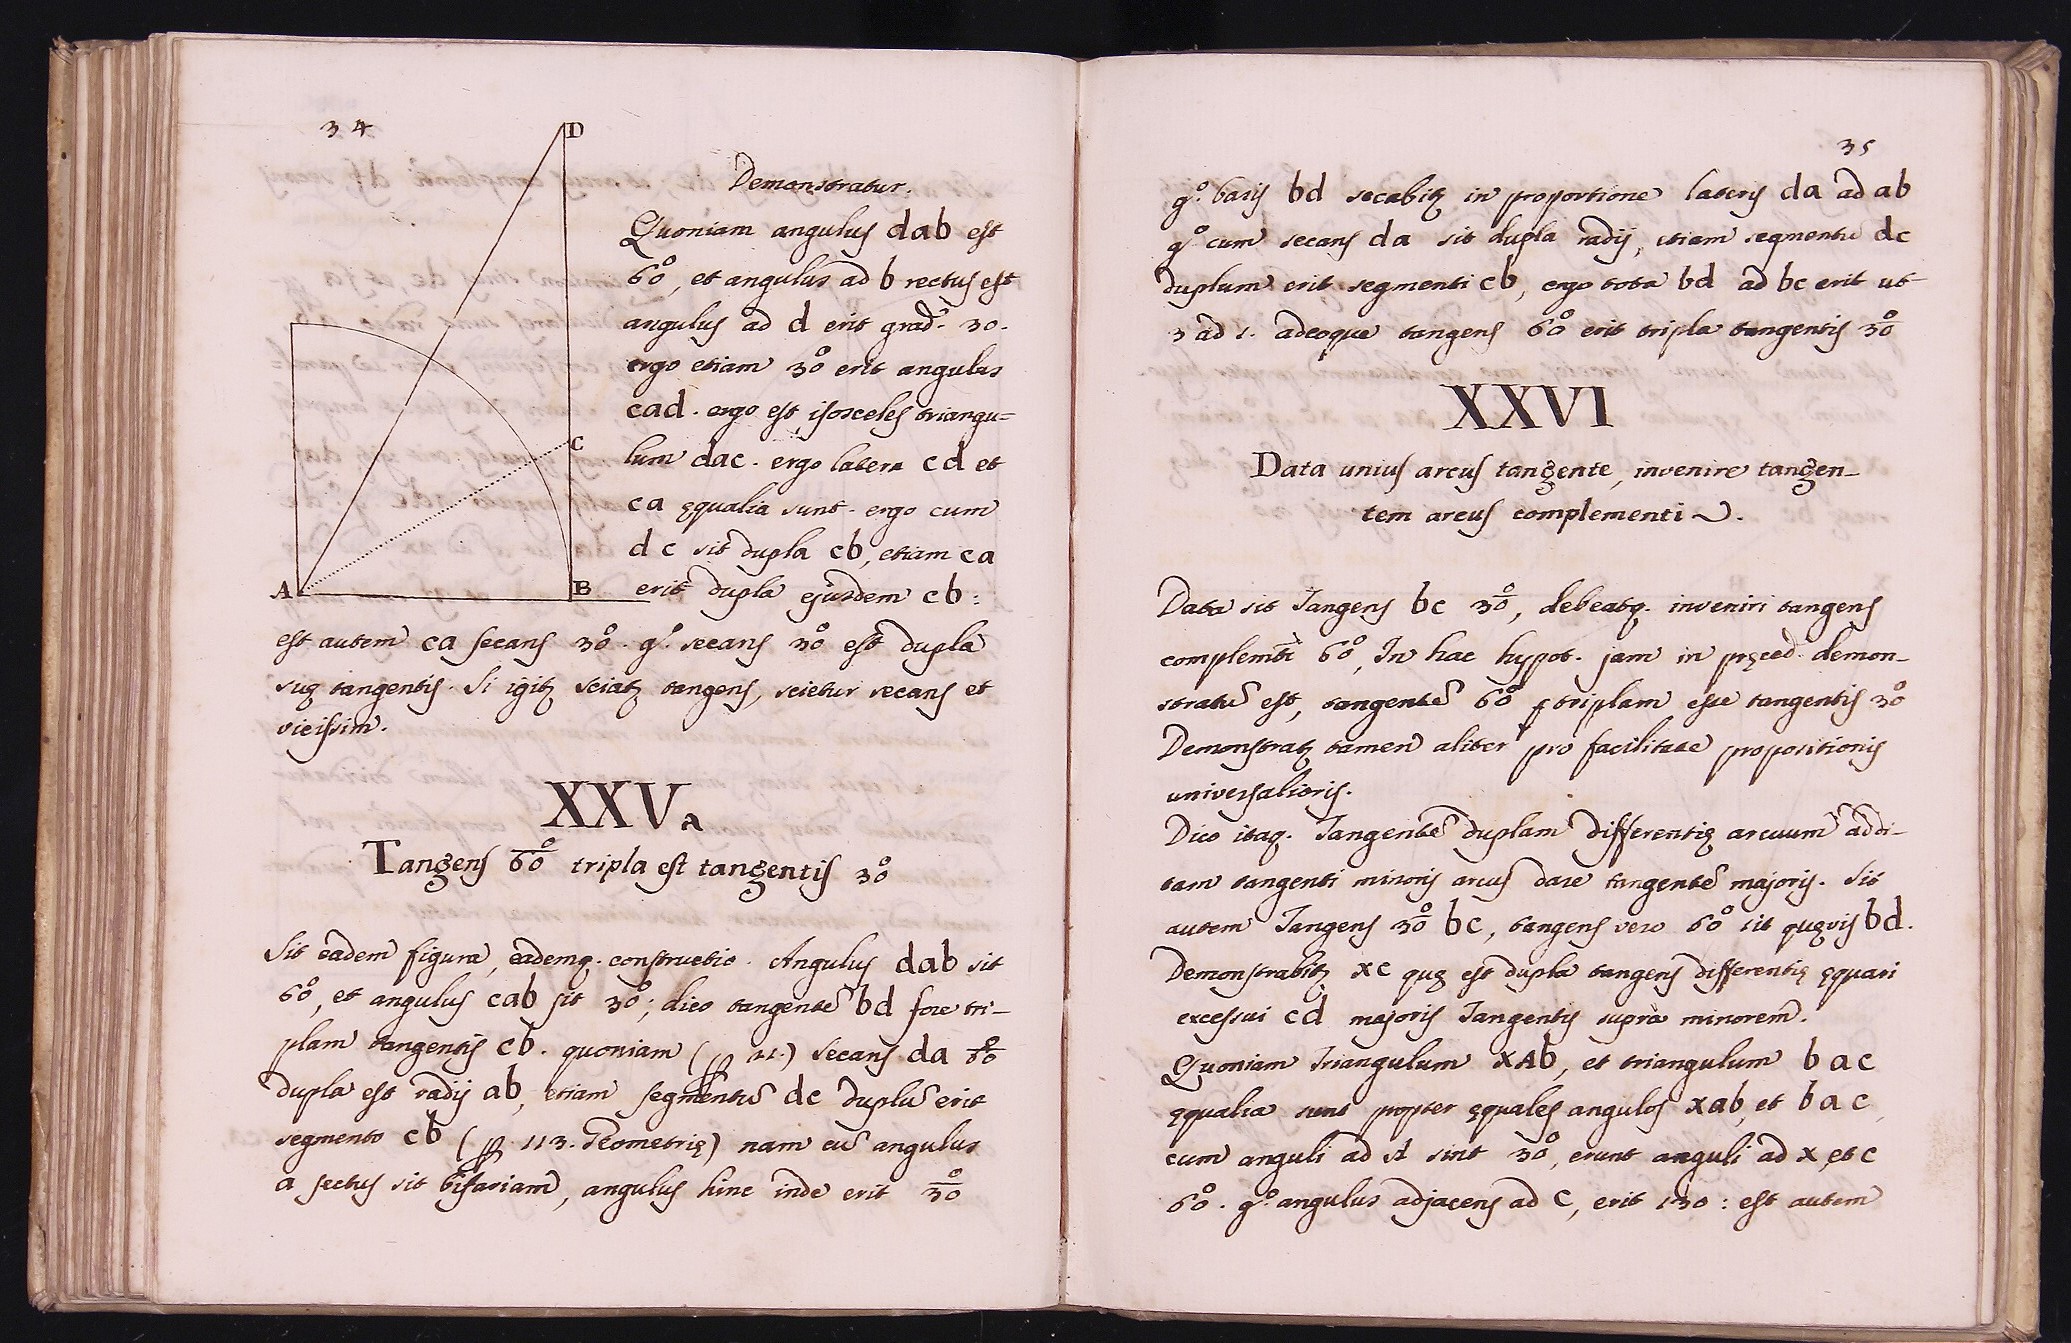 34
D
Demonstratur.
Quoniam angulus dab est
60°, et angulus ad b rectus est
angulus ad d erit grad. 30.
ergo etiam 30° erit angulus
cad. ergo est isosceles triangu=
C
lum dac. ergo latera cd et
ca ęqualia sunt. ergo cum
dc sit dupla cb, etiam ca
A B
erit dupla ejusdem cb:
est autem ca secans 30°. gº. secans 30° est dupla
suę tangentis. Si igitꝫ sciatꝫ tangens, scietur secans et
vicissim.
XXVa
Tangens 60° tripla est tangentis 30°
Sit eadem figura, eademq. constructio. Angulus dab sit
60°, et angulus cab sit 30°; dico tangentē bd fore tri-
plam tangentis cb. quoniam ( 21.) secans da 60°
dupla est radij ab, etiam segmentū dc duplū erit
segmento cb ( 113. Geometrię) nam cū angulus
a sectus sit bifariam, angulus hinc inde erit 30°
35
gº. basis bd secabitꝫ in proportione lateris da ad ab
gº cum secans da sit dupla radij, etiam segmentū dc
duplum erit segmenti cb, ergo tota bd ad bc erit ut
3 ad 1. adeoque tangens 60° erit tripla tangentis 30°
XXVI
Data unius arcus tangente, invenire tangen-
tem arcus complementi.
Data sit Tangens bc 30°, debeatq. inveniri tangens
complemti 60°, In hac hypot. jam in pręced. demon-
stratū est, tangentē 60° triplam esse tangentis 30°
Demonstratꝫ tamen aliter pro facilitate propositionis
universalioris.
Dico itaq. Tangentē duplam differentię arcuum addi-
tam tangenti minoris arcus dare tangentē majoris. Sit
autem Tangens 30° bc, tangens vero 60° sit quęvis bd.
Demonstrabitꝫ xc quę est dupla tangens differentię ęquari
excessui cd majoris Tangentis supra minorem.
Quoniam Triangulum XAb, et triangulum bac
ęqualia sunt propter ęquales angulos xab, et bac,
cum anguli ad A sint 30°, erunt anguli ad x, et c
60°. gº. angulus adjacens ad c, erit 130: est autem